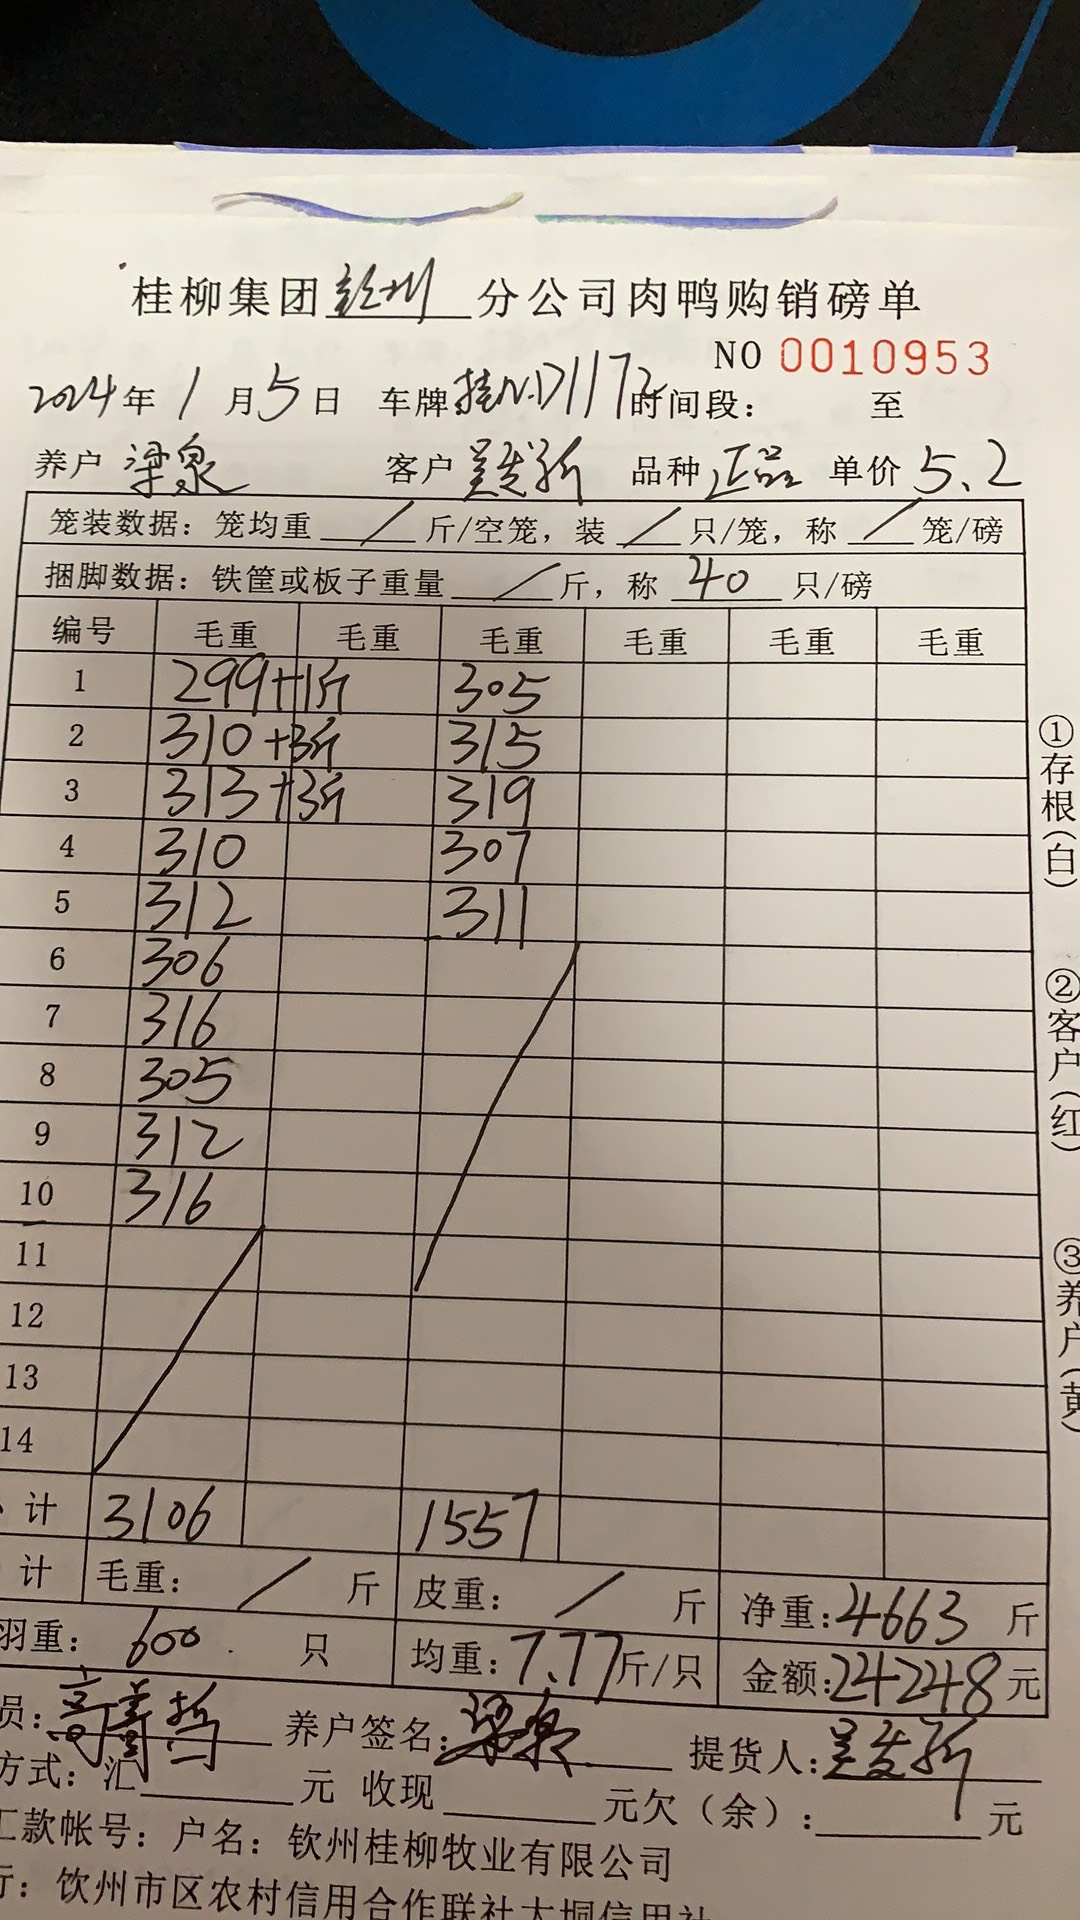 桂柳集团 钦州 分公司肉鸭购销磅单
NO 0010953
2024年 1 月 5 日 车牌 桂N·D1172 时间段： 至
养户 梁泉 客户 吴发新 品种 正品 单价 5.2
笼装数据：笼均重 / 斤/空笼，装 / 只/笼，称 / 笼/磅
捆脚数据：铁筐或板子重量 / 斤，称 40 只/磅
编号 毛重 毛重 毛重 毛重 毛重 毛重
1 299+1斤 305
2 310+3斤 315
3 313+3斤 319
4 310 307
5 312 311
6 306
7 316
8 305
9 312
10 316
11
12
13
14
计 3106 1557
计 毛重： / 斤 皮重： / 斤 净重：4663 斤
羽重： 600 只 均重：7.77斤/只 金额：24248元
员： 养户签名：梁泉 提货人：吴发新
方式：汇 元 收现 元欠（余）： 元
汇款帐号：户名：钦州桂柳牧业有限公司
行：钦州市区农村信用合作联社大垌信用社
①存根（白）
②客户（红）
③养户（黄）